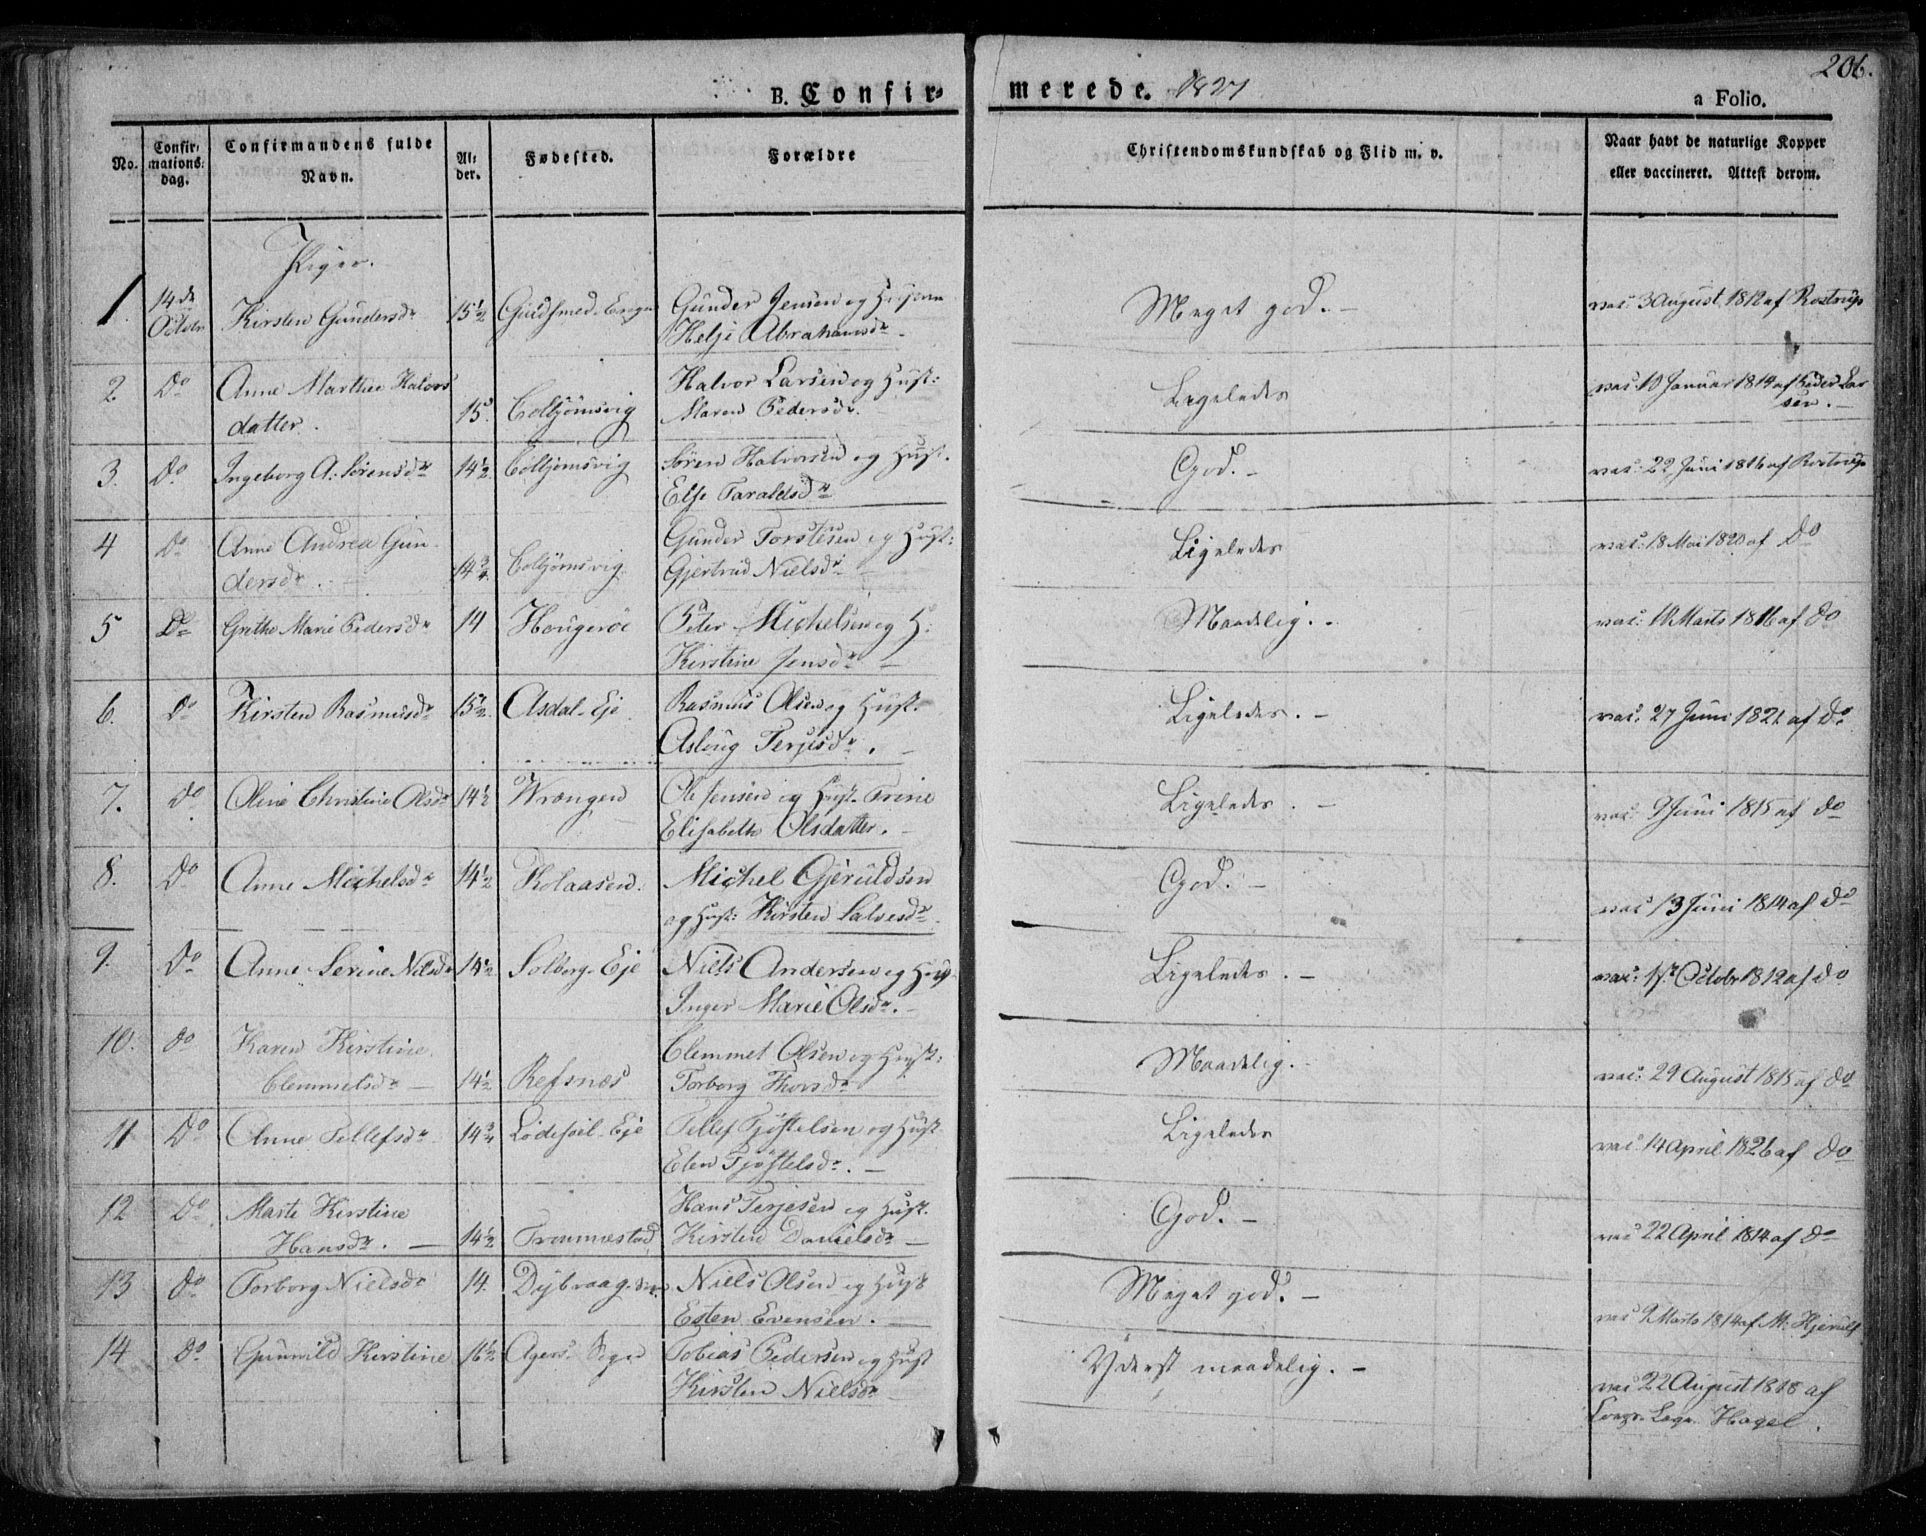 206.
B. Confir=
merede. 1827
a Folio.
No.
Confir=
mations=
dag.
Confirmandens fulde
Navn.
Al=
der.
Fødested.
Forældre
Christendomskundskab og Flid m. v.
Naar havt de naturlige Kopper
eller vaccineret. Attest derom.
Piger.
1 14de Octobr Kirsten Gundersdr 15½ Gunder Jensen og
Helje Abrahamsdr Meget god. – vac: 3 August 1812 af Rostrup
2 Do Anne Marthe Halvors
datter. 15. Colbjørnsvig Halvor Larsen og Hust:
Maren Pedersdr. Ligeledes vac: 10 Januar 1814 af Peder Lar
sen. –
3. Do Ingeborg A. Sørensdr 14½ Colbjørnsvig Søren Halvorsen og Hust.
Else Taraldsdr God. – vac: 22 Juni 1816 af Rostrup
4 Do Anne Andrea Gun
dersdr. 14¾ Colbjørnsvig. Gunder Torstesen og Hust:
Gjertrud Nielsdr – Ligeledes vac: 18 Mai 1820 af Do
5 Do Grethe Marie Pedersdr 14 Hougerøe Peter Michelsen og H:
Kirstine Jensdr – Maadelig. – vac: Marts 1816 af Do
6. Do Kirsten Rasmusdr 15½ Asdal-Eje Rasmus Olsen og Hust.
Asloug Terjesdr. – Ligeledes. – vac. 27 Juni 1821 af Do
7. Do Oline Christine Olsdr 14½ Wrængen Ole Jensen og Hust. Trine
Elisabeth Olsdatter. – Ligeledes. – vac: 9 Juni 1815 af Do
8. Do Anne Michelsdr 14½ Kolaasen. Michel Gjeruldsen
og Hust: Kirsten Salvesdr. God. – vac 13 Juni 1814 af Do
9. Do Anne Serine Nielsdr 14½ Solberg-Eje Niels Andersen og Hust
Inger Marie Olsdr. – Ligeledes. – vac: Octobr 1812 af Do
10. Do Karen Kirstine
Clemmetsdr – 14½ Refsnæs Clemmet Olsen og Hust:
Torborg Thorsdr Maadelig. – vac: 29 August 1815 af Do
11 Do Anne Tellefsdr 14¾ Lødesøel-Eje Tellef Tjøstelsen og Hust
Elen Tjøstelsdr. – Ligeledes vac: 14 April 1826 af Do
12 Do Marte Kirstine
Hansdr. – 14½ Tromøestad Hans Terjesen og Hust.
Kirsten Danielsdr – God. – vac 22 April 1814 af Do
13 Do Torborg Nielsdr 14. Dybvaag Niels Olsen og Hust
Esten Evensen. – Meget god. – vac 9 Marts 1814 af M: Hjerulf
14 Do Gunvild Kirstine 16½ Agers Tobias Pedersen og Hust
Kirsten Nielsdr – Yderst maadelig. – vac 22 August 1818 af
Hagel.